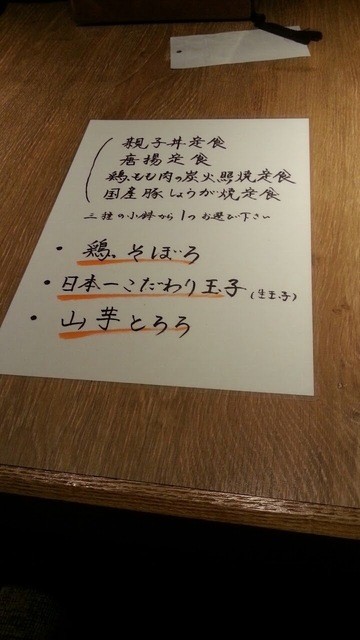 親子丼定食
唐揚定食
鶏もも肉の炭火照焼定食
国産豚しょうが焼定食
三種の小鉢から1つお選び下さい
・鶏そぼろ
・日本一こだわり玉子(生玉子)
・山芋とろろ